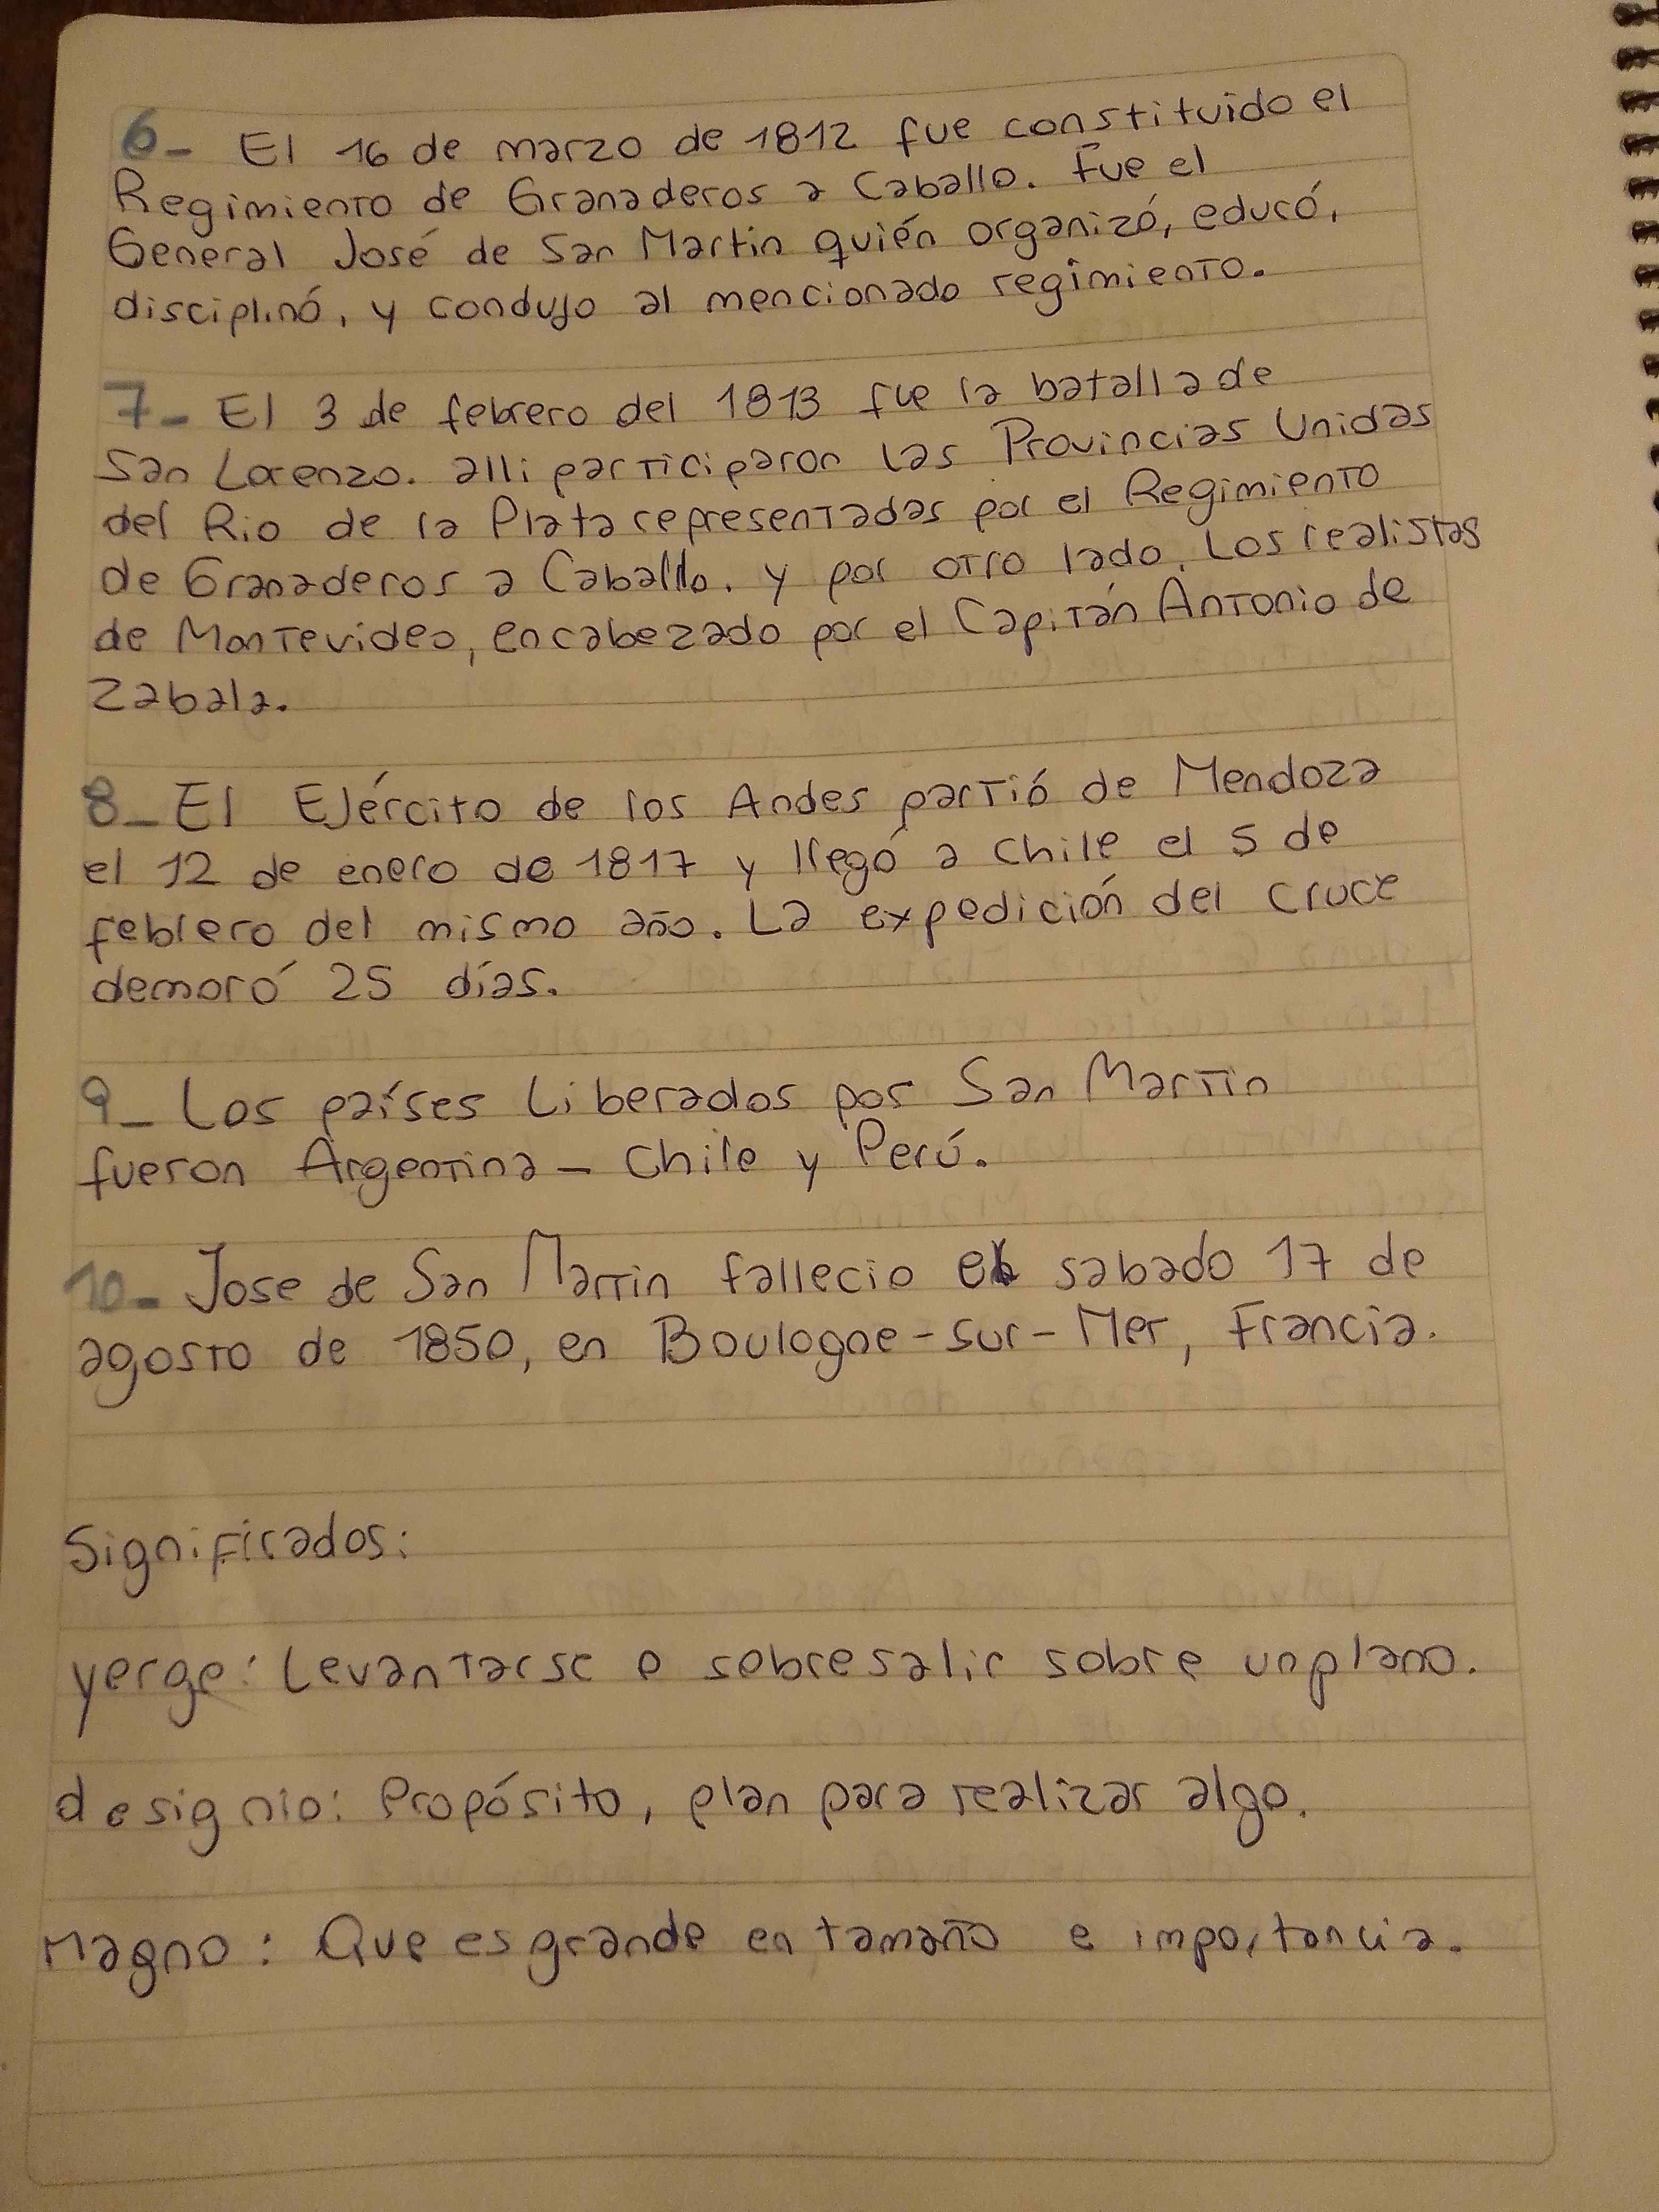 6- El 16 de marzo de 1812 fue constituido el
Regimiento de Granaderos a Caballo. Fue el
General José de San Martin quién organizó, educó,
disciplinó, y condujo al mencionado regimiento.
7- El 3 de febrero del 1813 fue la batalla de
San Lorenzo. alli participaron las Provincias Unidas
del Rio de la Plata representadas por el Regimiento
de Granaderos a Caballo. y por otro lado. Los realistas
de Montevideo, encabezado por el Capitán Antonio de
Zabala.
8- El Ejército de los Andes partió de Mendoza
el 12 de enero de 1817 y llegó a Chile el 5 de
febrero del mismo año. La expedición del cruce
demoró 25 días.
9- Los países Liberados por San Martin
fueron Argentina - Chile y Perú.
10- Jose de San Martin fallecio el sabado 17 de
agosto de 1850, en Boulogne-sur-Mer, Francia.
Significados:
yerge: Levantarse o sobresalir sobre un plano.
designio: Propósito, plan para realizar algo.
Magno: Que es grande en tamaño e importancia.